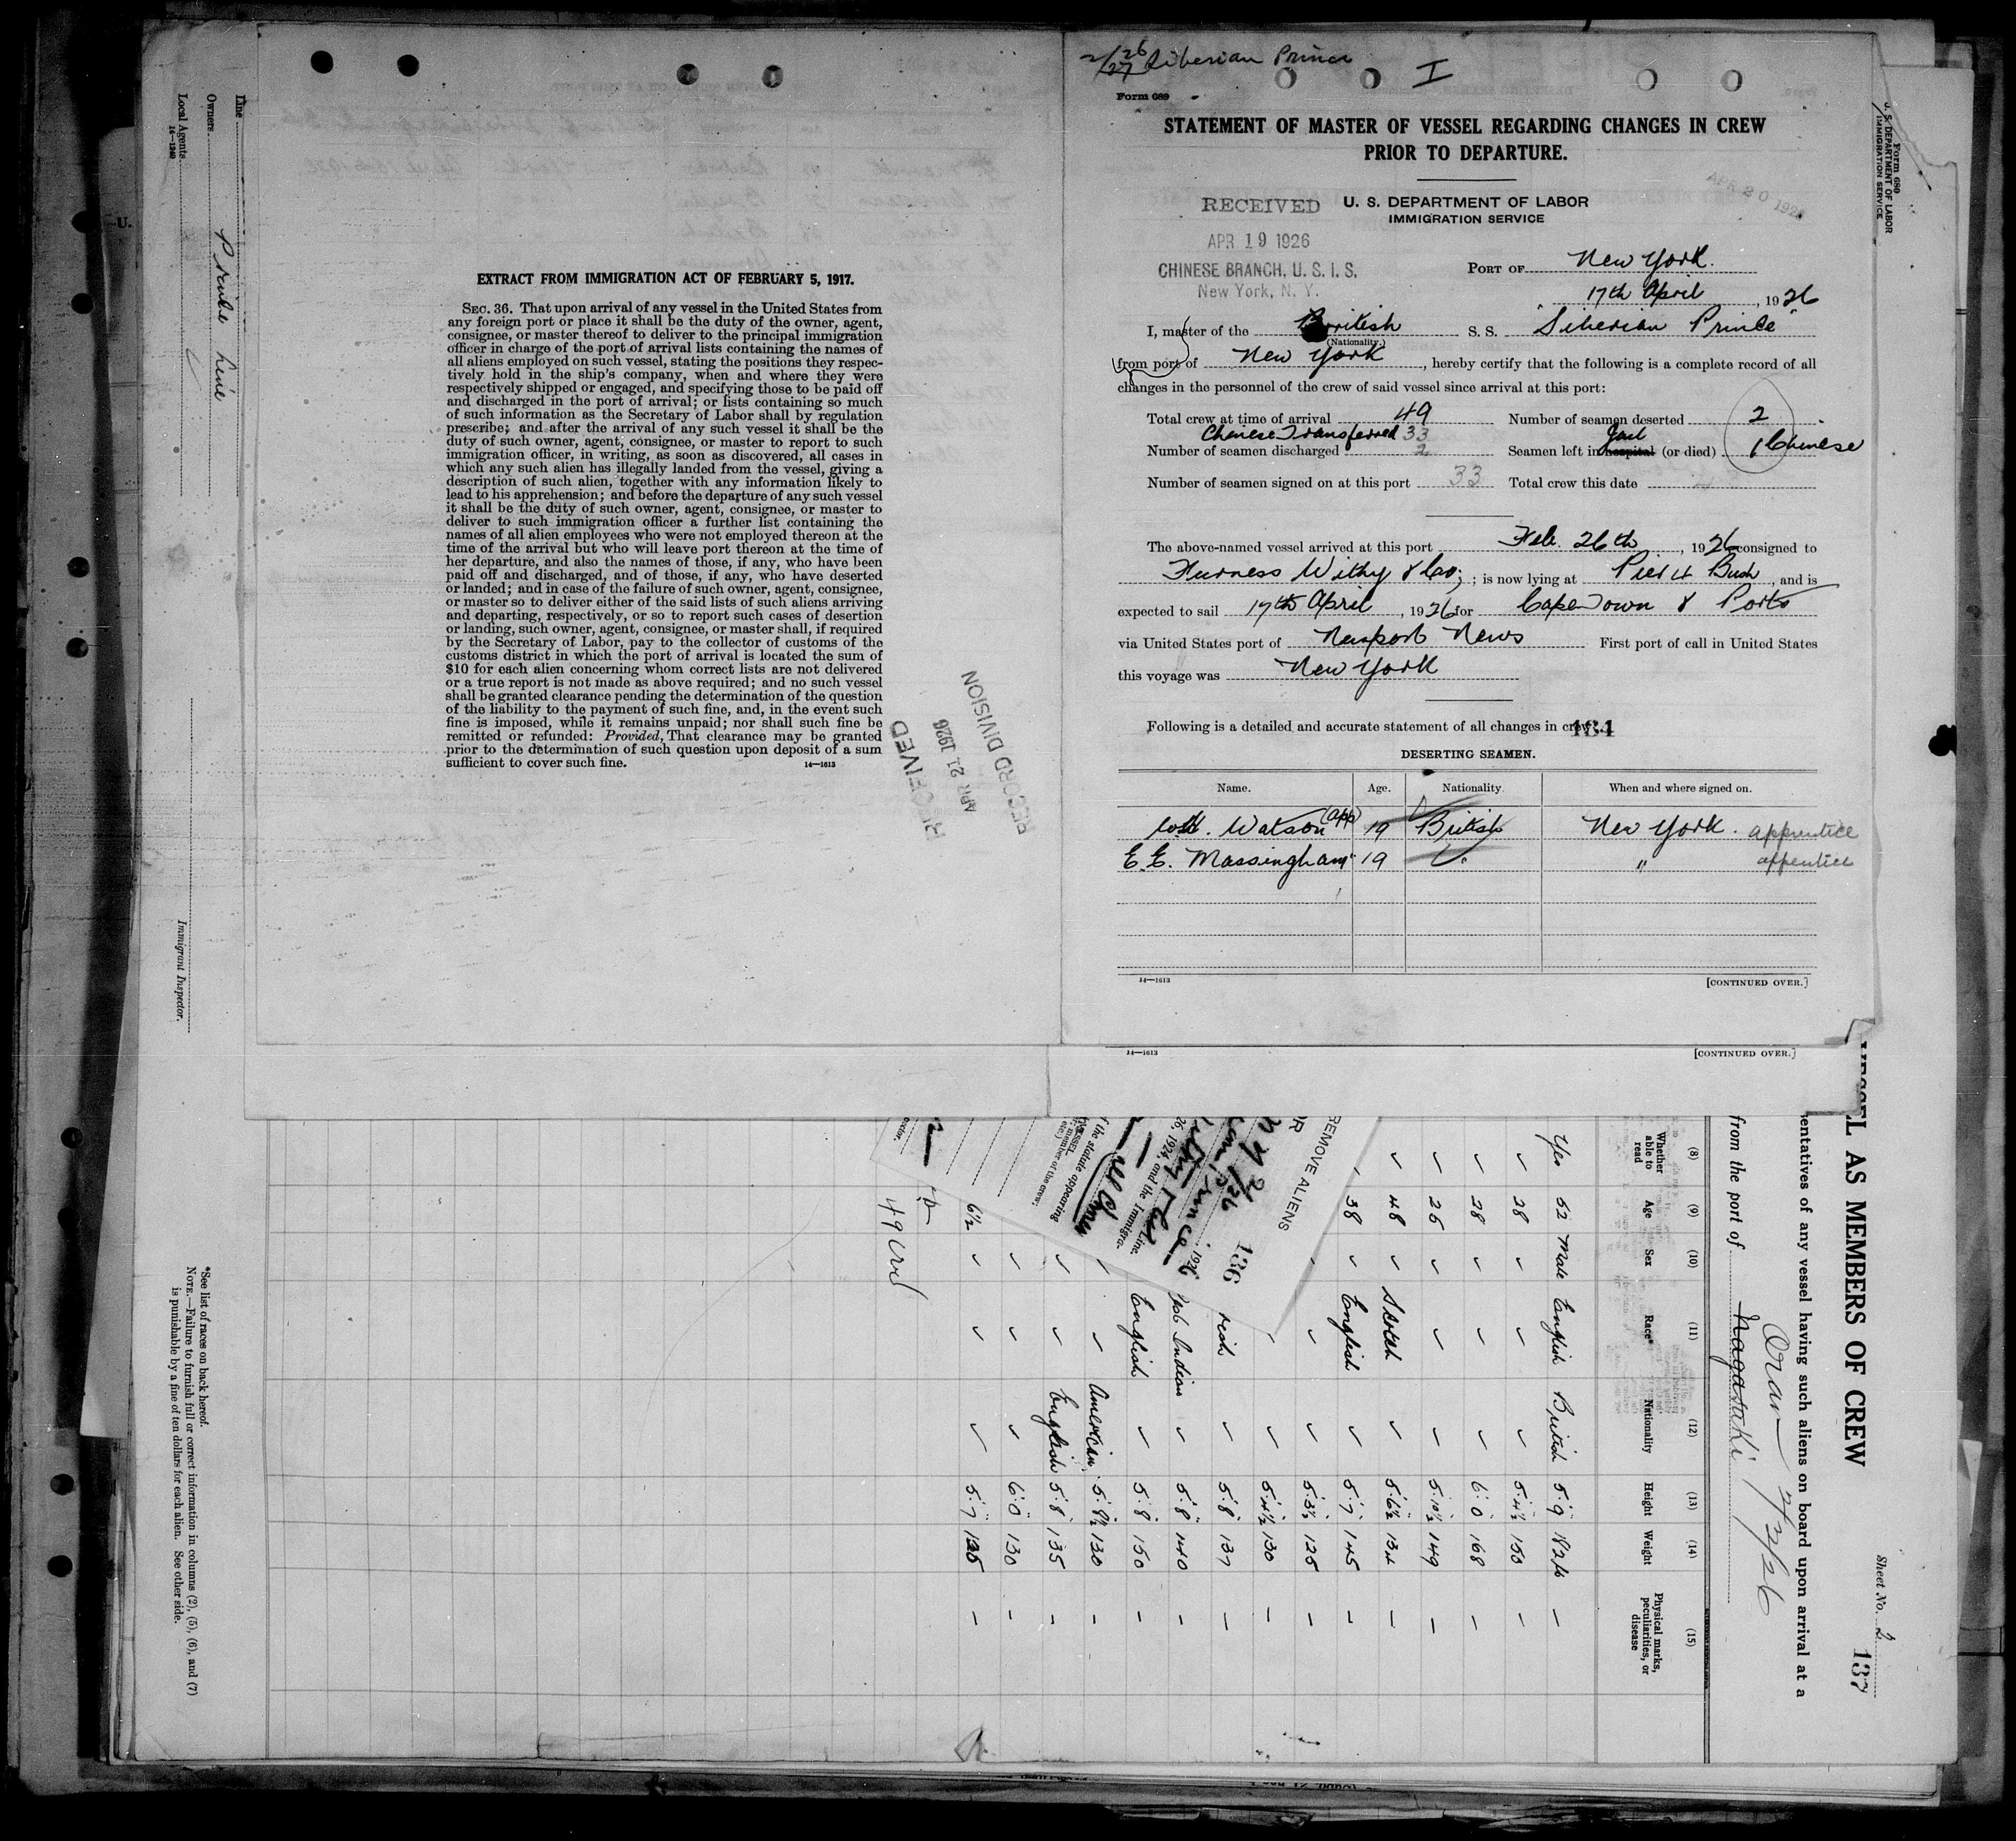 2/26/27 Siberian Prince
I
Form 689
STATEMENT OF MASTER OF VESSEL REGARDING CHANGES IN CREW
PRIOR TO DEPARTURE.
APR 20 1926
RECEIVED
APR 19 1926
CHINESE BRANCH, U. S. I. S.
New York, N. Y.
U. S. DEPARTMENT OF LABOR
IMMIGRATION SERVICE
PORT OF New York.
17th April, 1926
I, master of the British S. S. "Siberian Prince"
(Nationality.)
from port of New York, hereby certify that the following is a complete record of all
changes in the personnel of the crew of said vessel since arrival at this port:
Total crew at time of arrival 49 Number of seamen deserted 2
Chinese Transferred 33
Number of seamen discharged 2 Seamen left in hospital Jail (or died) 1 Chinese
Number of seamen signed on at this port 33 Total crew this date
The above-named vessel arrived at this port Feb. 26th, 1926 consigned to
Furness Withy & Co; ; is now lying at Pier 4 Bush, and is
expected to sail 17th April, 1926 for Cape Town & Ports
via United States port of Newport News First port of call in United States
this voyage was New York
Following is a detailed and accurate statement of all changes in crew:
134
DESERTING SEAMEN.
Name. Age. Nationality. When and where signed on.
Watson (app) 19 British New York. apprentice
E. E. Massingham 19 " " apprentice
14—1613 [CONTINUED OVER.]
14—1613 [CONTINUED OVER.]
EXTRACT FROM IMMIGRATION ACT OF FEBRUARY 5, 1917.
SEC. 36. That upon arrival of any vessel in the United States from
any foreign port or place it shall be the duty of the owner, agent,
consignee, or master thereof to deliver to the principal immigration
officer in charge of the port of arrival lists containing the names of
all aliens employed on such vessel, stating the positions they respec-
tively hold in the ship's company, when and where they were
respectively shipped or engaged, and specifying those to be paid off
and discharged in the port of arrival; or lists containing so much
of such information as the Secretary of Labor shall by regulation
prescribe; and after the arrival of any such vessel it shall be the
duty of such owner, agent, consignee, or master to report to such
immigration officer, in writing, as soon as discovered, all cases in
which any such alien has illegally landed from the vessel, giving a
description of such alien, together with any information likely to
lead to his apprehension; and before the departure of any such vessel
it shall be the duty of such owner, agent, consignee, or master to
deliver to such immigration officer a further list containing the
names of all alien employees who were not employed thereon at the
time of the arrival but who will leave port thereon at the time of
her departure, and also the names of those, if any, who have been
paid off and discharged, and of those, if any, who have deserted
or landed; and in case of the failure of such owner, agent, consignee,
or master so to deliver either of the said lists of such aliens arriving
and departing, respectively, or so to report such cases of desertion
or landing, such owner, agent, consignee, or master shall, if required
by the Secretary of Labor, pay to the collector of customs of the
customs district in which the port of arrival is located the sum of
$10 for each alien concerning whom correct lists are not delivered
or a true report is not made as above required; and no such vessel
shall be granted clearance pending the determination of the question
of the liability to the payment of such fine, and, in the event such
fine is imposed, while it remains unpaid; nor shall such fine be
remitted or refunded: Provided, That clearance may be granted
prior to the determination of such question upon deposit of a sum
sufficient to cover such fine.
14—1613
RECEIVED
APR 21 1926
RECORD DIVISION
Form 680
U. S. DEPARTMENT OF LABOR
IMMIGRATION SERVICE
Line
Owners Prince Line
Local Agents
14—1240
Immigrant Inspector.
Sheet No. 2
137
AS MEMBERS OF CREW
entatives of any vessel having such aliens on board upon arrival at a
Oran 7/2/26
from the port of Nagasaki
(8) (9) (10) (11) (12) (13) (14) (15)
Whether able to read Age Sex Race* Nationality Height Weight Physical marks, peculiarities, or disease
Yes 52 Male English British 5'9" 182 lb —
✓ 28 ✓ 5'4½ 150 —
✓ 28 ✓ ✓ 6'0 168 —
✓ 26 ✓ ✓ ✓ 5'10½ 149 —
✓ 48 ✓ Scotch ✓ 5'6½ 134 —
38 ✓ English ✓ 5'7 145 —
✓ ✓ 5'3½ 125 —
✓ 5'4½ 130 —
✓ 5'8 137 —
Indian ✓ 5'8" 140 —
English ✓ 5'8 150 —
✓ American 5'8½ 130 —
✓ ✓ English 5'8 135 —
✓ ✓ ✓ 6'0" 130 —
✓ ✓ ✓ 5'7 125 —
49 Crew
REMOVE ALIENS
136
1926
26, 1924, and the Immigra-
the statute appearing
member of the crew;
*See list of races on back hereof.
NOTE.—Failure to furnish full or correct information in columns (2), (5), (6), and (7)
is punishable by a fine of ten dollars for each alien. See other side.